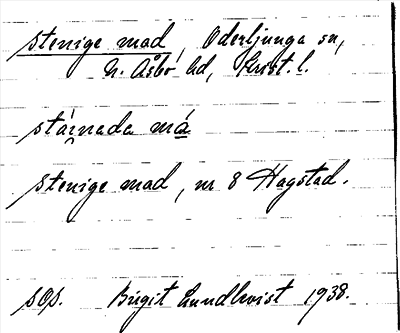 stenige mad, Oderljunga sn,
N. Åsbo hd, Krist. l.
stáinada má
stenige mad, nr 8 Hagstad.
sOp. Birgit Lundkvist 1938.